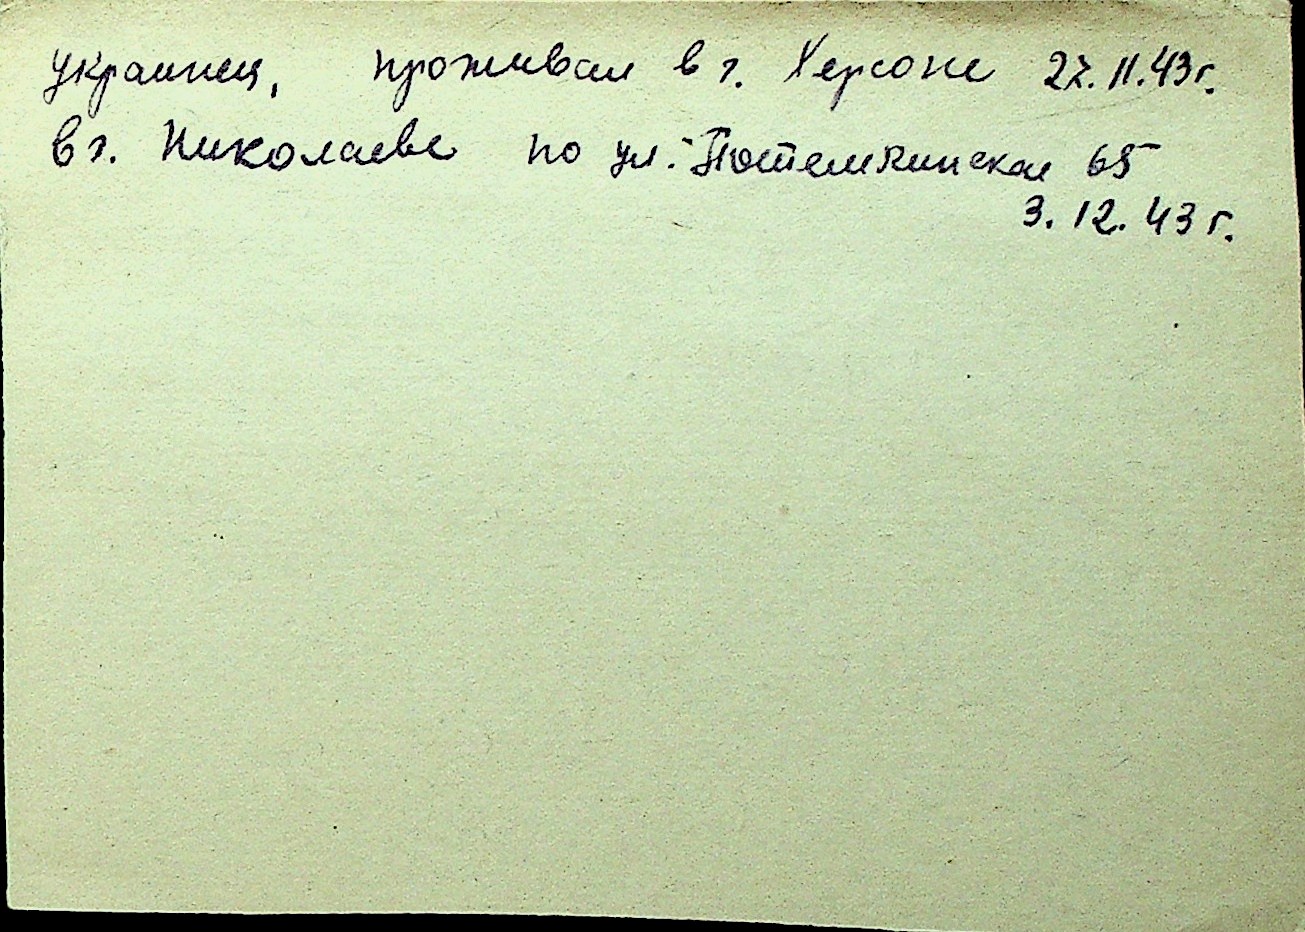 украинец, проживал в г. Херсоне 27.11.43г.
в г. Николаеве по ул. Потемкинская 65
3.12.43г.